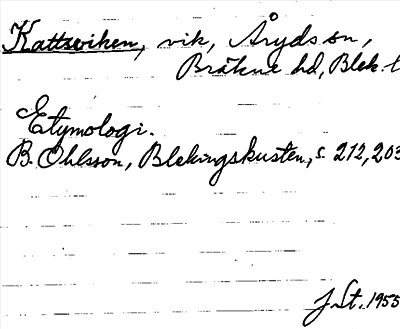 Kattsviken, vik, Åryds sn,
Bräkne hd, Blek. l
Etymologi.
B. Ohlsson, Blekingskusten, s. 212, 203
J. St. 1955